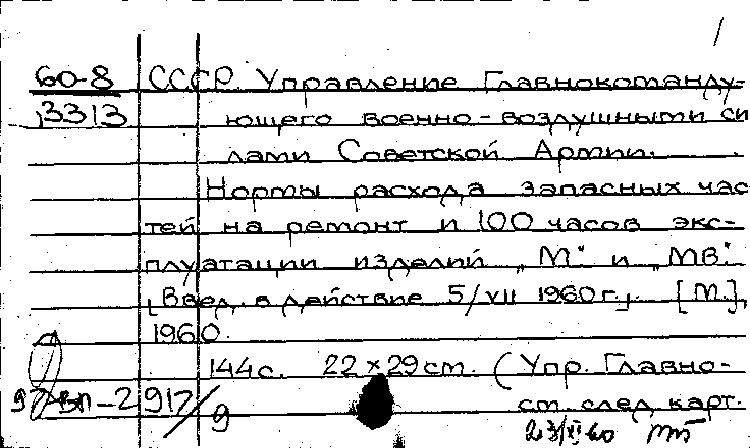 1
60-8 СССР. Управление Главнокоманду-
3313 ющего военно-воздушными си
лами Советской Армии.
Нормы расхода запасных час
тей на ремонт и 100 часов экс-
плуатации изделий „М" и „МВ".
[Введ. в действие 5/VII 1960 г.]. [М.],
1960.
144 с. 22×29 см. (Упр. Главно-
ВП-2917/9 см. след. карт.
23/XI 60